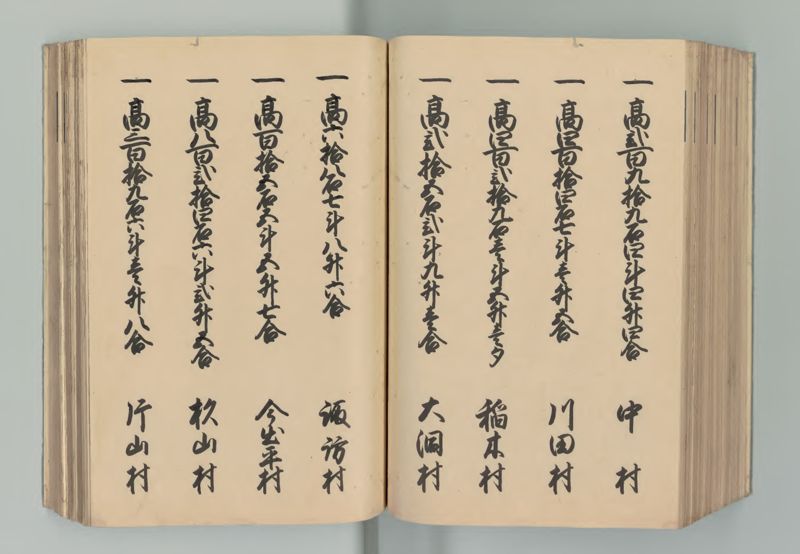 一 高弐百九拾九石四斗四升四合 中村
一 高四百拾四石七斗壱升五合 川田村
一 高四百弐拾九石壱斗五升壱夕 稲木村
一 高弐拾五石弐斗九升壱合 大洞村
一 高六拾八石七斗八升六合 諏訪村
一 高百拾五石五斗五升七合 今出平村
一 高八百弐拾四石六斗弐升五合 杉山村
一 高三百拾九石六斗壱升八合 片山村